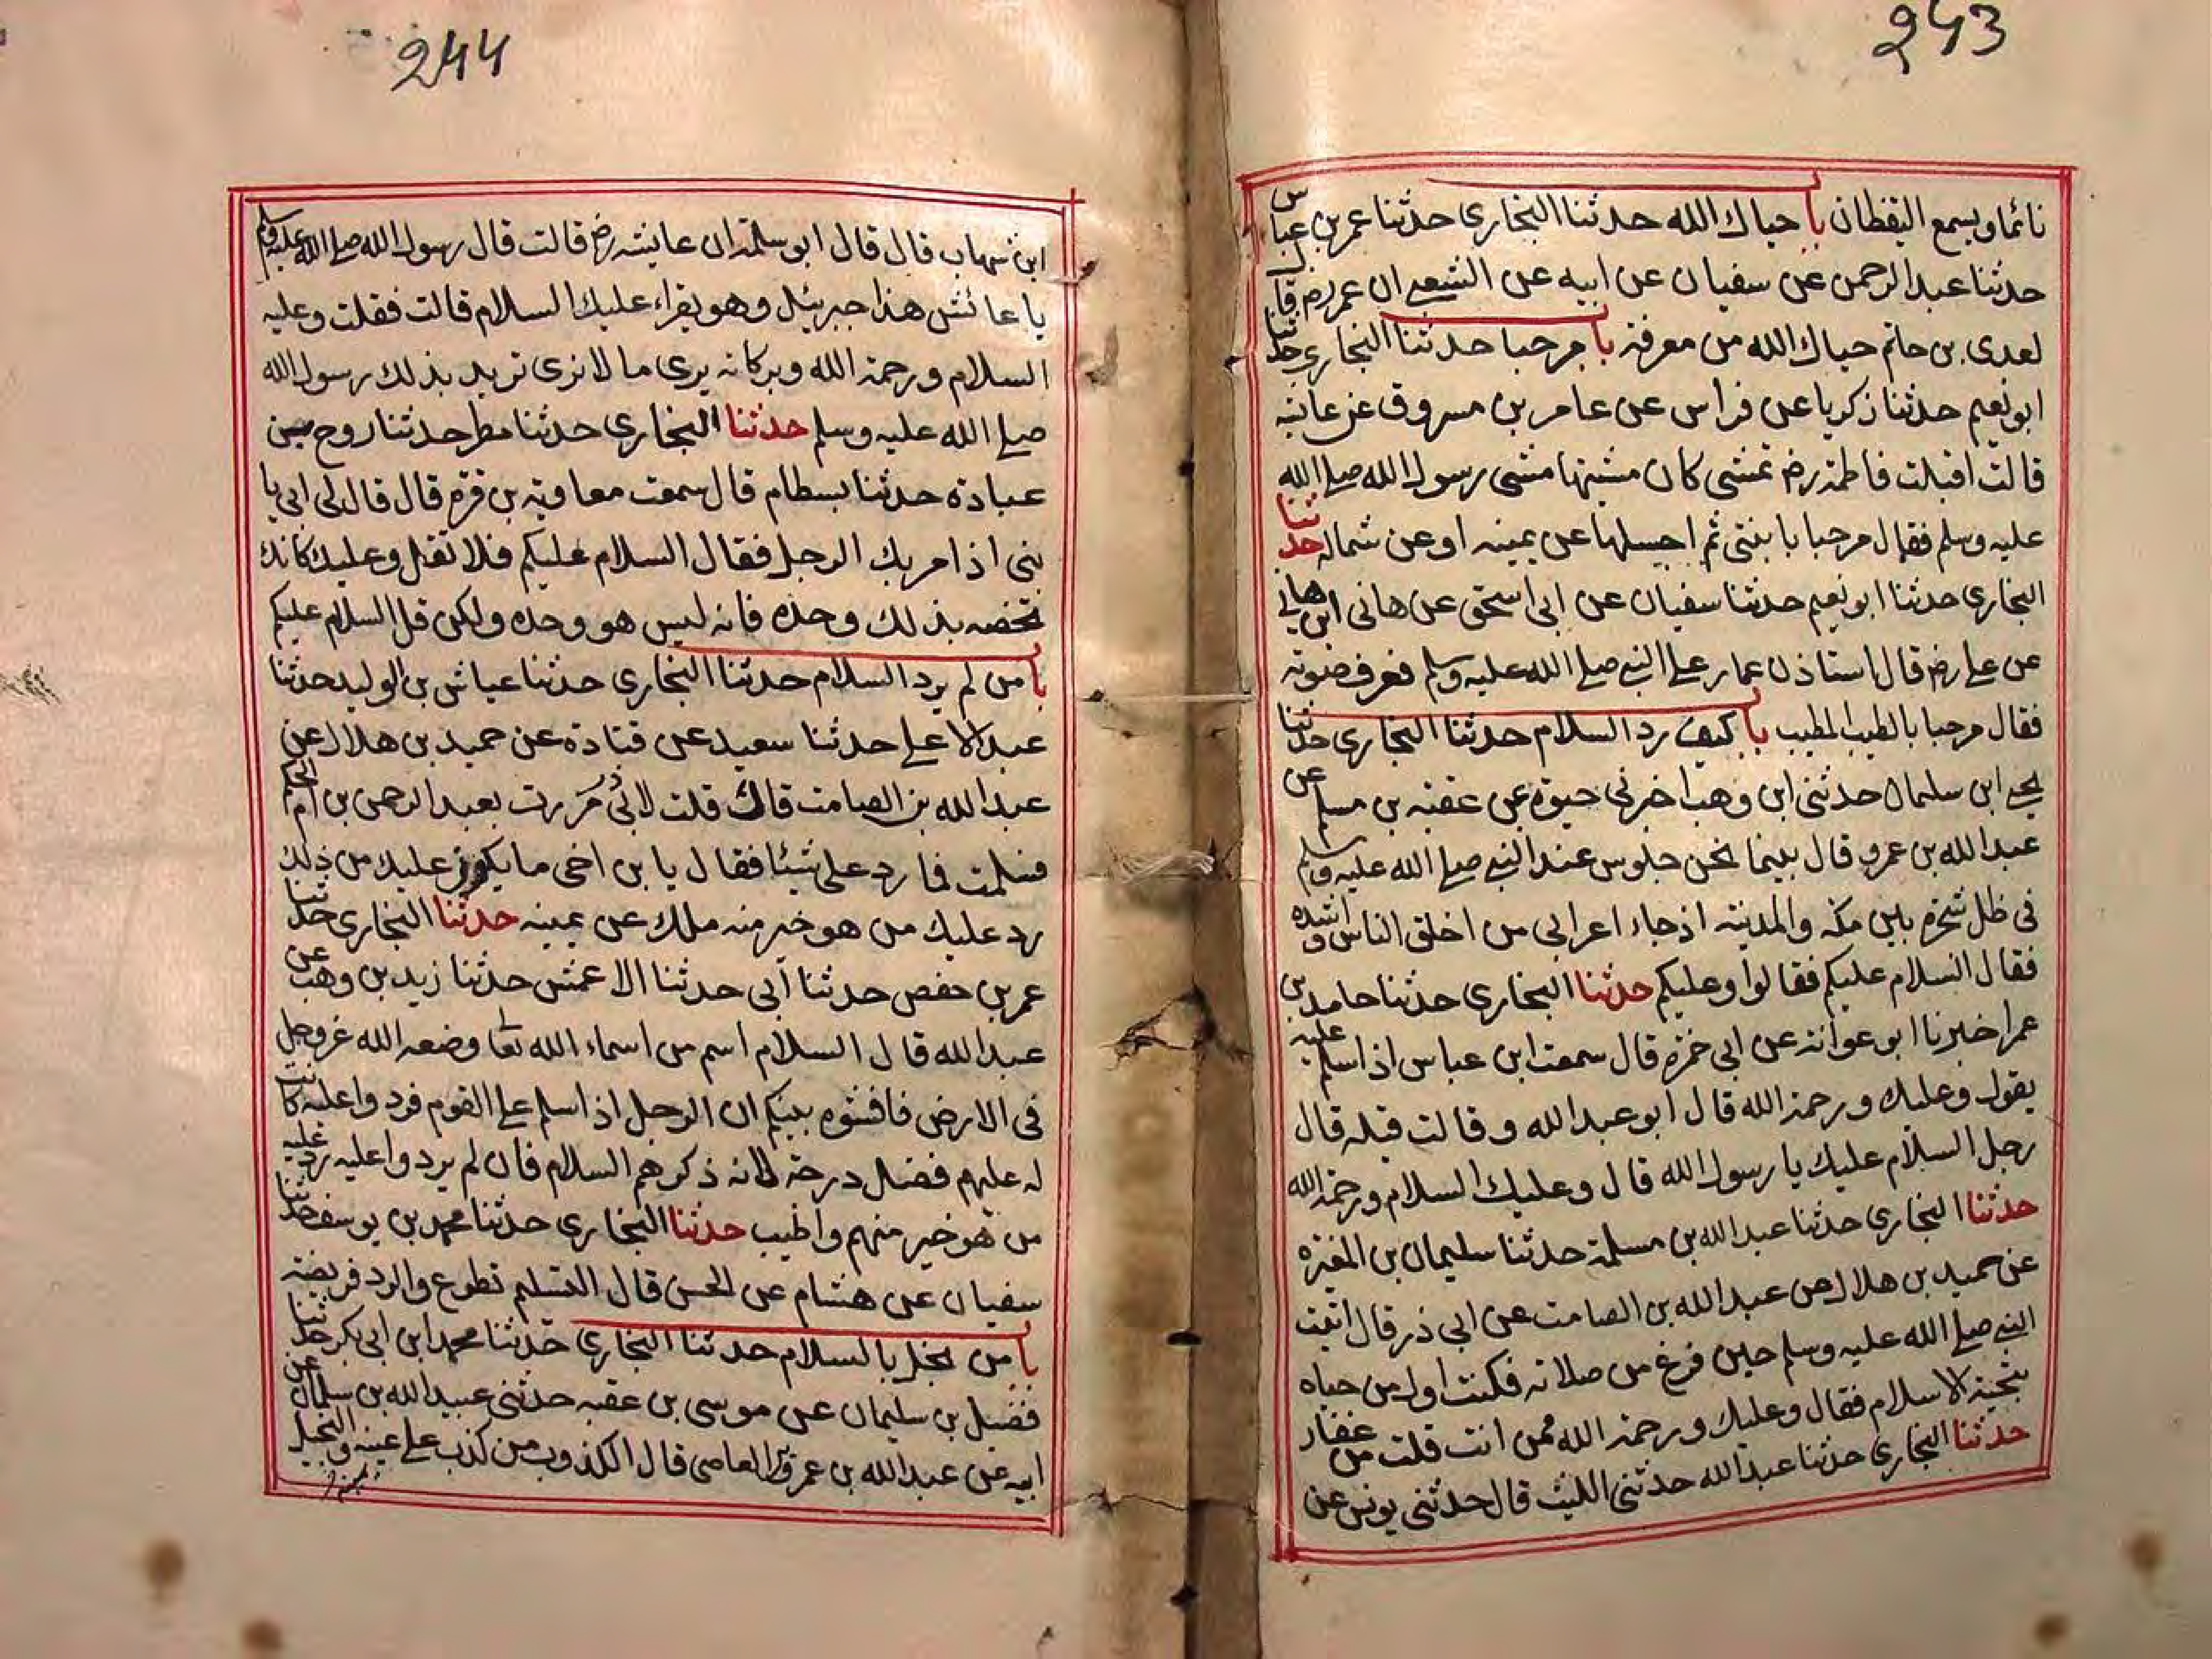 243
نائما ويسمع اليقظان با حياك الله حدثنا البخاري حدثنا عمر بن عباس
حدثنا عبد الرحمن عن سفيان عن ابيه عن الشعبي ان عمر رض قال
لعدى بن حاتم حياك الله من معرفة با مرحبا حدثنا البخاري حدثنا
ابو نعيم حدثنا زكريا عن فراس عن عامر بن مسروق عن عايشه
قالت اقبلت فاطمة رض تمشى كان مشيتها مشى رسول الله صلے الله
عليه وسلم فقال مرحبا يا بنتى ثم اجسلها عن يمينه او عن شماله حدثنا
البخارى حدثنا ابو نعيم حدثنا سفيان عن ابى اسحق عن هانى ابن هانے
عن علے رض قال استاذن عمار علے النبے صلے الله عليه وسلم فعرف صوته
فقال مرحبا بالطيب المطيب با كيف رد السلام حدثنا البخارى حدثنا
يحيے ابن سليمان حدثنى ابن وهب اخبرنى حيوة عن عقبه بن مسلم عن
عبد الله بن عمرو قال بينما نحن جلوس عند النبے صلے الله عليه وسلم
فى ظل شجرة بين مكه والمدينه اذ جاء اعرابى من اخلق الناس واشده
فقال السلام عليكم فقالوا وعليكم حدثنا البخارى حدثنا حامد بن
عمر اخبرنا ابو عوانة عن ابى جمزة قال سمعت ابن عباس اذا سلم عليه
يقول وعليك ورحمة الله قال ابو عبد الله وقالت قيله قال
رجل السلام عليك يا رسول الله قال وعليك السلام ورحمة الله
حدثنا البخارى حدثنا عبد الله بن مسلمة حدثنا سليمان بن المغيرة
عن حميد بن هلال عن عبد الله بن الصامت عن ابى ذر قال اتيت
النبے صلے الله عليه وسلم حين فرغ من صلاته فكنت اول من حياه
بتحية الاسلام فقال وعليك ورحمة الله ممن انت قلت من غفار
حدثنا البخارى حدثنا عبد الله حدثنى الليث قال حدثنى يونس عن
244
ابن شهاب قال قال ابو سلمة ان عايشه رض قالت قال رسول الله صلے الله عليه وسلم
يا عائش هذا جبريئل وهو يقراء عليك السلام قالت فقلت وعليه
السلام ورحمة الله وبركاته يرى ما لا نرى تريد بذلك رسول الله
صلے الله عليه وسلم حدثنا البخارى حدثنا مطر حدثنا روح بن
عبادة حدثنا بسطام قال سمعت معاوية بن قرة قال قال لى ابى يا
بنى اذا مر بك الرجل فقال السلام عليكم فلا تقل وعليك كانك
تخصه بذلك وحده فانه ليس هو وحده ولكن قل السلام عليكم
با من لم يرد السلام حدثنا البخارى حدثنا عياش بن الوليد حدثنا
عبد الاعلے حدثنا سعيد عن قتادة عن حميد بن هلال عن
عبد الله بن الصامت قال قلت لابى ذر مررت بعبد الرحمن بن ام الحكم
فسلمت فما رد على شيئا فقال يا بن اخى ما يكون عليك من ذلك
رد عليك من هو خير منه ملك عن يمينه حدثنا البخارى حدثنا
عمر بن حفص حدثنا ابى حدثنا الاعمش حدثنا زيد بن وهب عن
عبد الله قال السلام اسم من اسماء الله تعا وضعه الله عزوجل
فى الارض فافشوه بينكم ان الرجل اذا سلم علے القوم فردوا عليه كانت
له عليهم فضل درجة لانه ذكرهم السلام فان لم يردوا عليه رد عليه
من هو خير منهم واطيب حدثنا البخارى حدثنا محمد بن يوسف حدثنا
سفيان عن هشام عن الحسن قال التسليم تطوع والرد فريضة
با من بخل بالسلام حدثنا البخارى حدثنا محمد ابن ابى بكر حدثنا
فضيل بن سليمان عن موسى بن عقبه حدثنى عبيد الله بن سلمان عن
ابيه عن عبد الله بن عمرو بن العاصى قال الكذوب من كذب علے عينه والبخيل